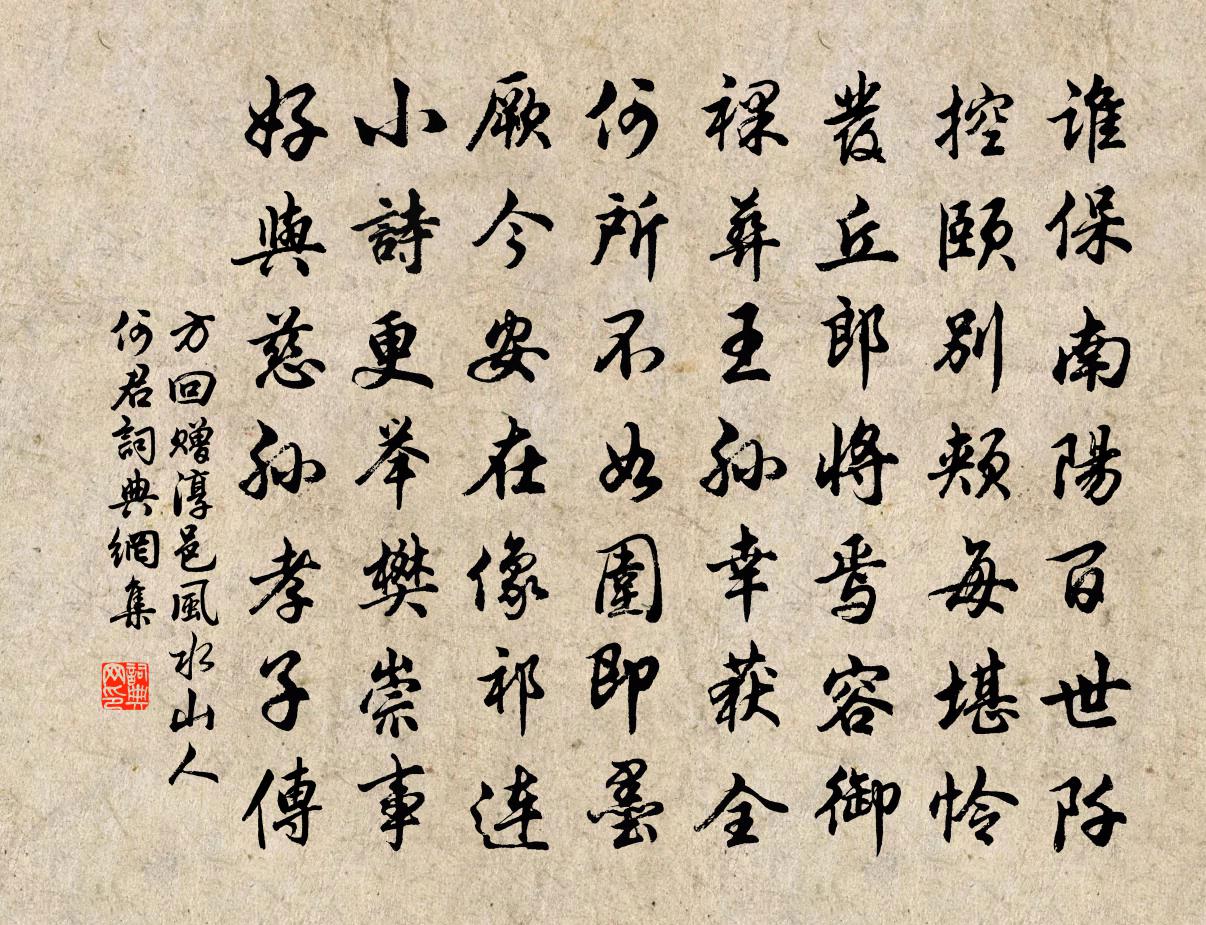 誰保南陽百世阡
控頤別頰每堪怜
發丘郎將焉容御
裸葬王孫幸獲全
何所不如圍即墨
厥今安在像祁連
小詩更舉樊崇事
好與慈孫孝子傳
方回贈淳邑風水山人
何君詞典網集
詞典网印